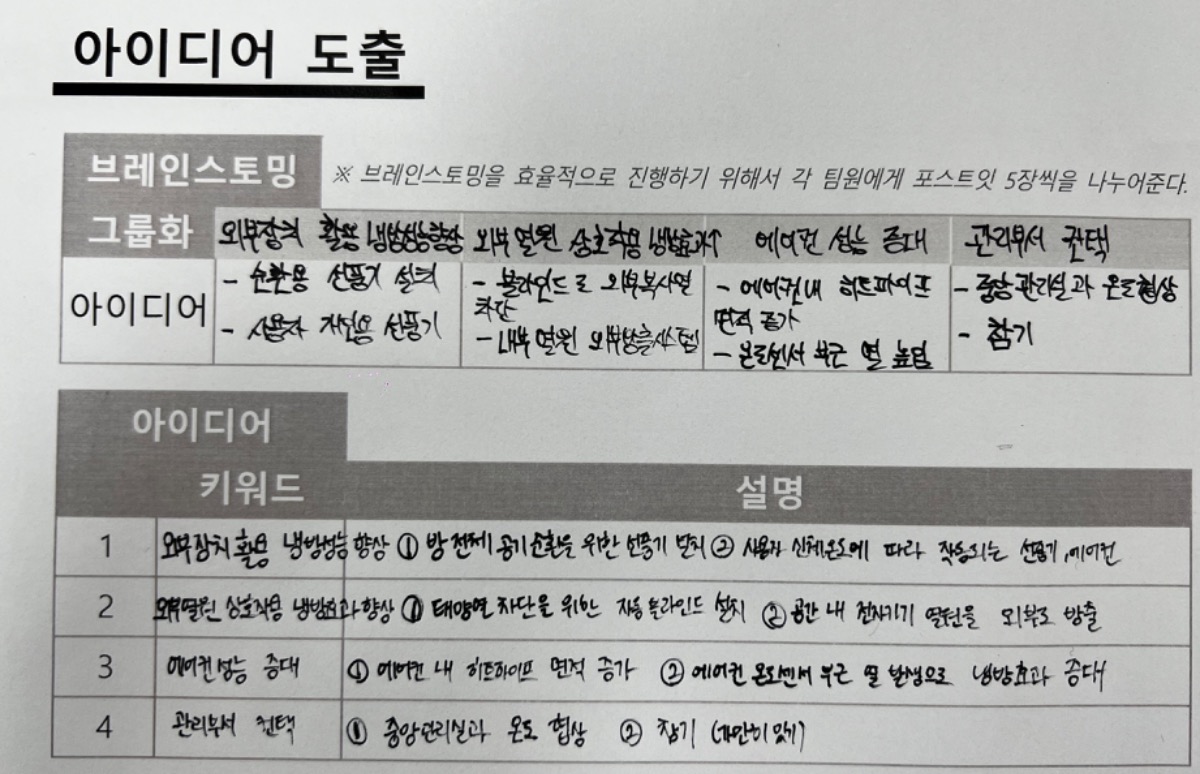 아이디어 도출
브레인스토밍
※ 브레인스토밍을 효율적으로 진행하기 위해서 각 팀원에게 포스트잇 5장씩을 나누어준다.
그룹화 외부장치 활용 냉방성능향상 외부 열원 상호작용 냉방효과↑ 에어컨 성능 증대 관리부서 컨택
아이디어
- 순환용 선풍기 설치
- 사용자 개인용 선풍기
- 블라인드로 외부복사열
차단
- 내부 열원 외부방출시스템
- 에어컨내 히트파이프
면적 증가
- 온도센서 부근 열 높임
- 중앙관리실과 온도협상
- 참기
아이디어
키워드 설명
1 외부장치 활용 냉방성능 향상 ① 방 전체 공기 순환을 위한 선풍기 설치 ② 사용자 신체온도에 따라 작동되는 선풍기, 에어컨
2 외부열원 상호작용 냉방효과 향상 ① 태양열 차단을 위한 자동 블라인드 설치 ② 공간 내 전자기기 열원을 외부로 방출
3 에어컨 성능 증대 ① 에어컨 내 히트파이프 면적 증가 ② 에어컨 온도센서 부근 열 발생으로 냉방효과 증대
4 관리부서 컨택 ① 중앙관리실과 온도 협상 ② 참기 (가만히 있기)